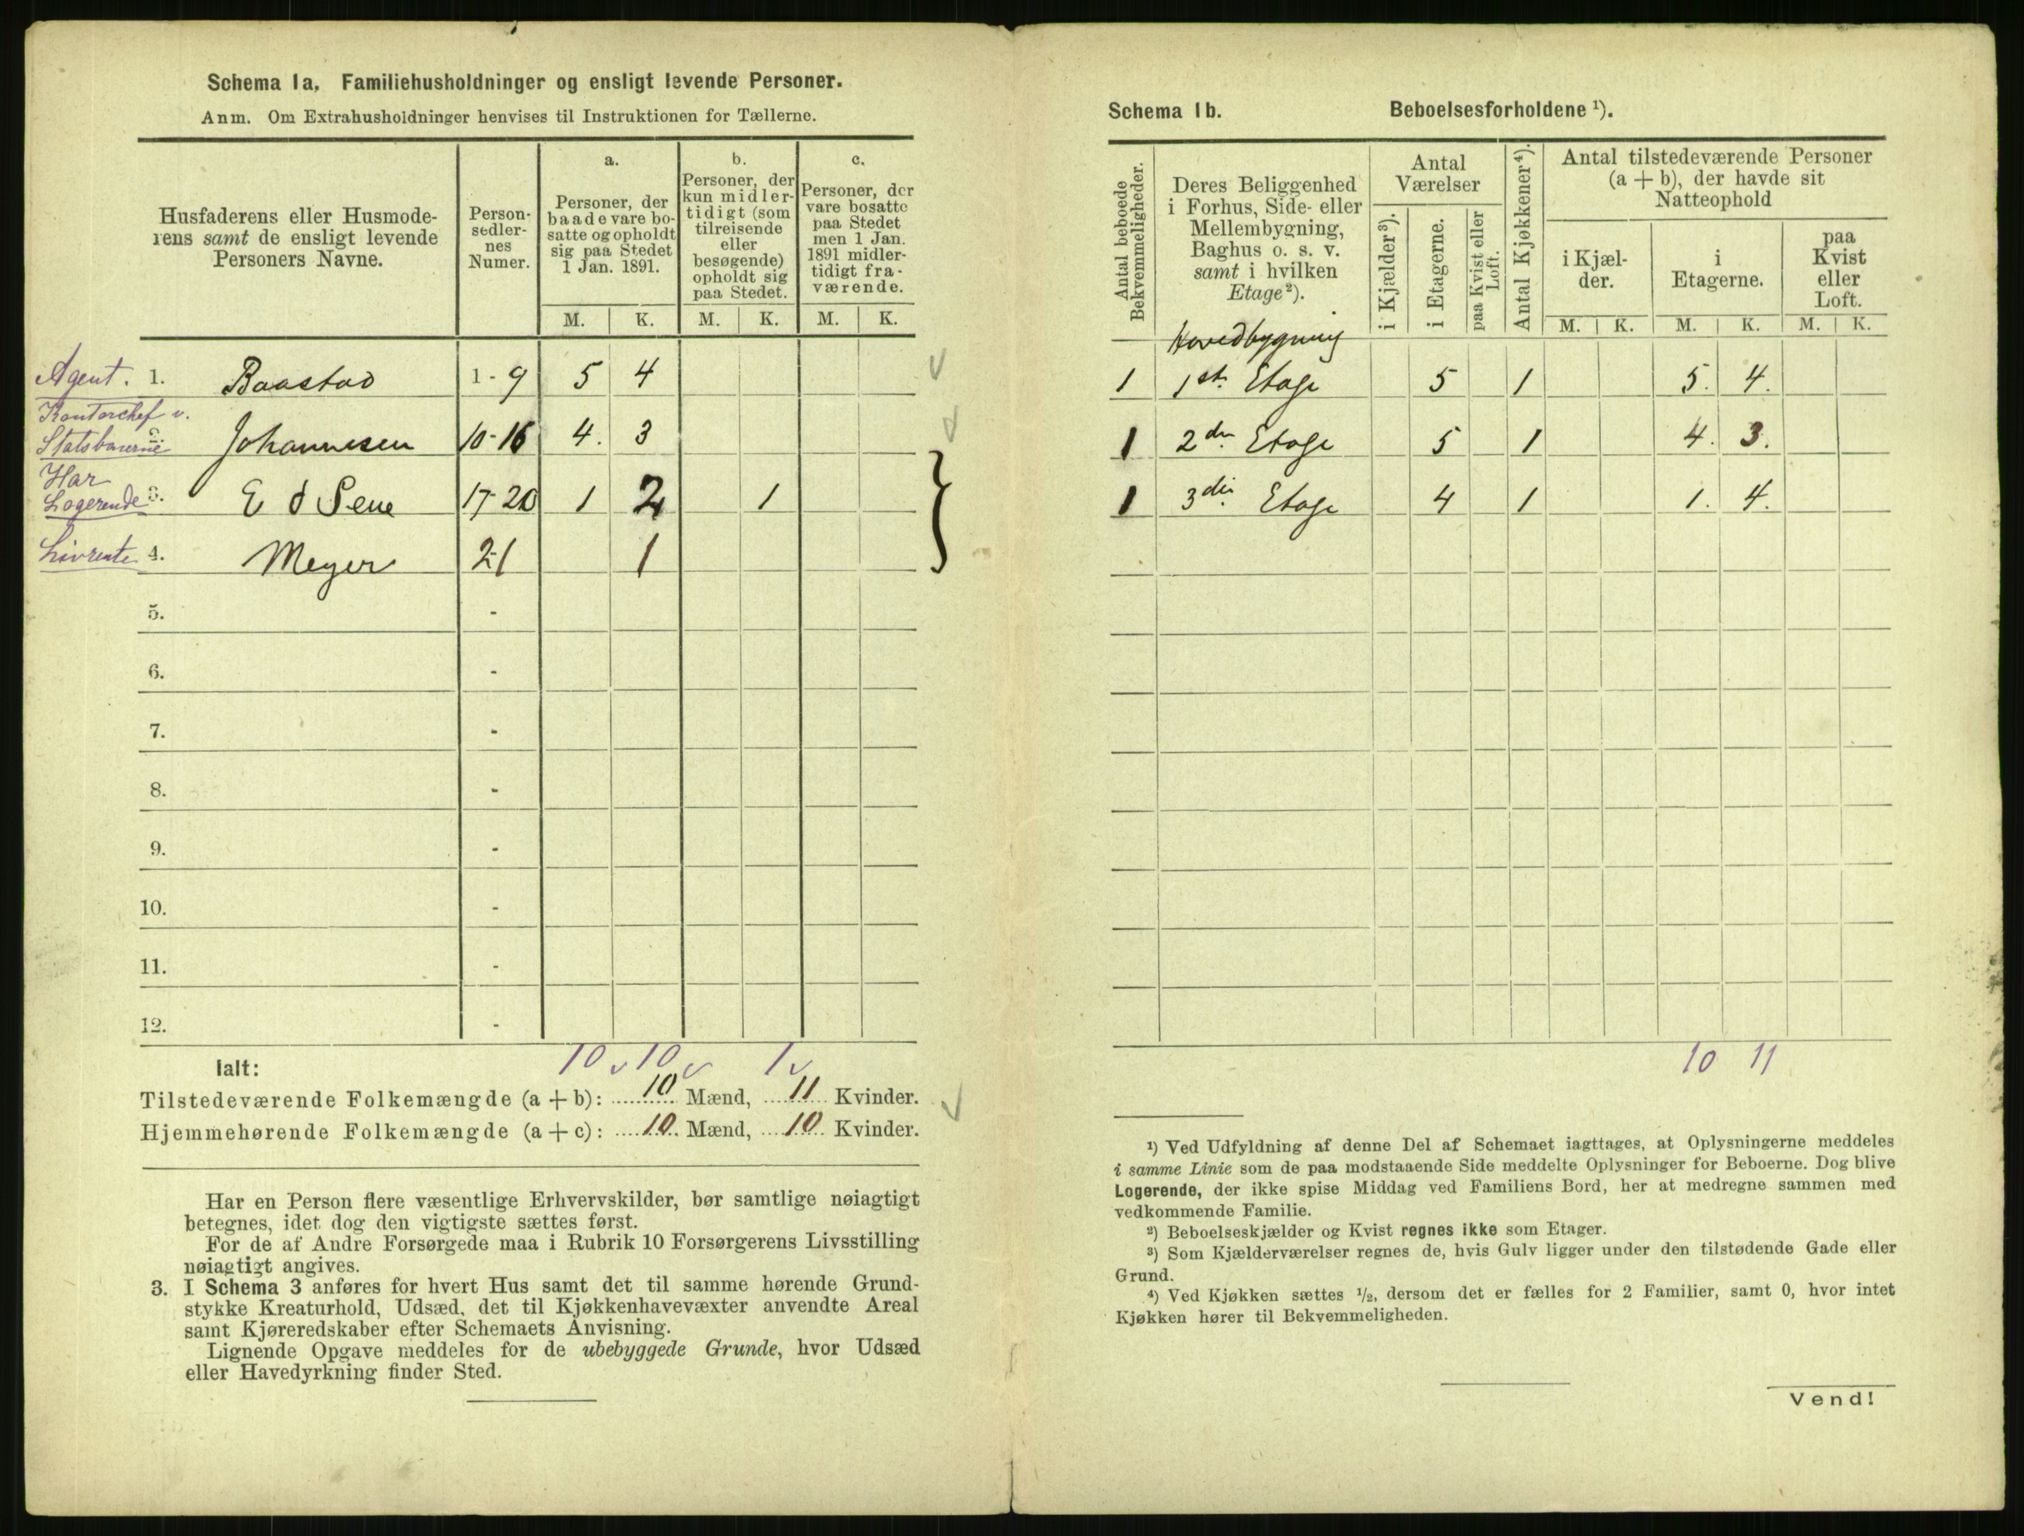 Schema 1a. Familiehusholdninger og ensligt levende Personer.
Anm. Om Extrahusholdninger henvises til Instruktionen for Tællerne.
Husfaderens eller Husmoderens samt de ensligt levende Personers Navne.
Personsedlernes Numer.
a.
Personer, der baade vare bosatte og opholdt sig paa Stedet 1 Jan. 1891.
b.
Personer, der kun midlertidigt (som tilreisende eller besøgende) opholdt sig paa Stedet.
c.
Personer, der vare bosatte paa Stedet men 1 Jan. 1891 midlertidigt fraværende.
M. K. M. K. M. K.
Agent. 1. Baastad 1 - 9 5 4
Kontorchef v. Statsbanerne 2. Johannesen 10-16 4. 3
Har Logerende 3. E d Seue 17-20 1 2 1
Livrente 4. Meyer 21 1
5. -
6. -
7. -
8. -
9. -
10. -
11. -
12. -
Ialt: 10 10 1
Tilstedeværende Folkemængde (a + b): 10 Mænd, 11 Kvinder.
Hjemmehørende Folkemængde (a + c): 10 Mænd, 10 Kvinder.
Har en Person flere væsentlige Erhvervskilder, bør samtlige nøiagtigt
betegnes, idet dog den vigtigste sættes først.
For de af Andre Forsørgede maa i Rubrik 10 Forsørgerens Livsstilling
nøiagtigt angives.
3. I Schema 3 anføres for hvert Hus samt det til samme hørende Grund-
stykke Kreaturhold, Udsæd, det til Kjøkkenhavevæxter anvendte Areal
samt Kjøreredskaber efter Schemaets Anvisning.
Lignende Opgave meddeles for de ubebyggede Grunde, hvor Udsæd
eller Havedyrkning finder Sted.
Schema 1b. Beboelsesforholdene ¹).
Antal beboede Bekvemmeligheder.
Deres Beliggenhed i Forhus, Side- eller Mellembygning, Baghus o. s. v. samt i hvilken Etage²).
Antal Værelser
i Kjælder³).
i Etagerne.
paa Kvist eller Loft.
Antal Kjøkkener⁴).
Antal tilstedeværende Personer (a + b), der havde sit Natteophold
i Kjælder.
i Etagerne.
paa Kvist eller Loft.
M. K. M. K. M. K.
Hovedbygning
1 1st. Etage 5 1 5. 4.
1 2den Etage 5 1 4. 3.
1 3die Etage 4 1 1. 4.
10 11
¹) Ved Udfyldning af denne Del af Schemaet iagttages, at Oplysningerne meddeles
i samme Linie som de paa modstaaende Side meddelte Oplysninger for Beboerne. Dog blive
Logerende, der ikke spise Middag ved Familiens Bord, her at medregne sammen med
vedkommende Familie.
²) Beboelseskjælder og Kvist regnes ikke som Etager.
³) Som Kjælderværelser regnes de, hvis Gulv ligger under den tilstødende Gade eller
Grund.
⁴) Ved Kjøkken sættes ½, dersom det er fælles for 2 Familier, samt 0, hvor intet
Kjøkken hører til Bekvemmeligheden.
Vend!